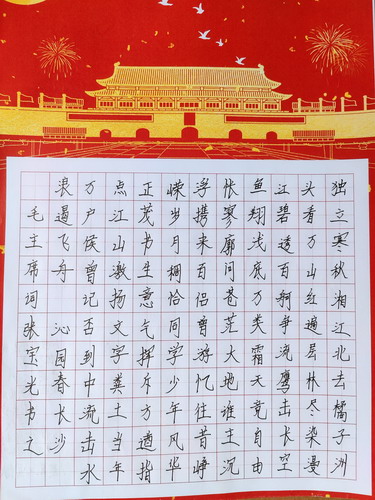 独立寒秋湘江北去橘子洲
头看万山红遍层林尽染漫
江碧透百舸争流鹰击长空
鱼翔浅底万类霜天竞自由
怅寥廓问苍茫大地谁主沉
浮携来百侣曾游忆往昔峥
嵘岁月稠恰同学少年风华
正茂书生意气挥斥方遒指
点江山激扬文字粪土当年
万户侯曾记否到中流击水
浪遏飞舟 沁园春长沙
毛主席词 张宝光书之